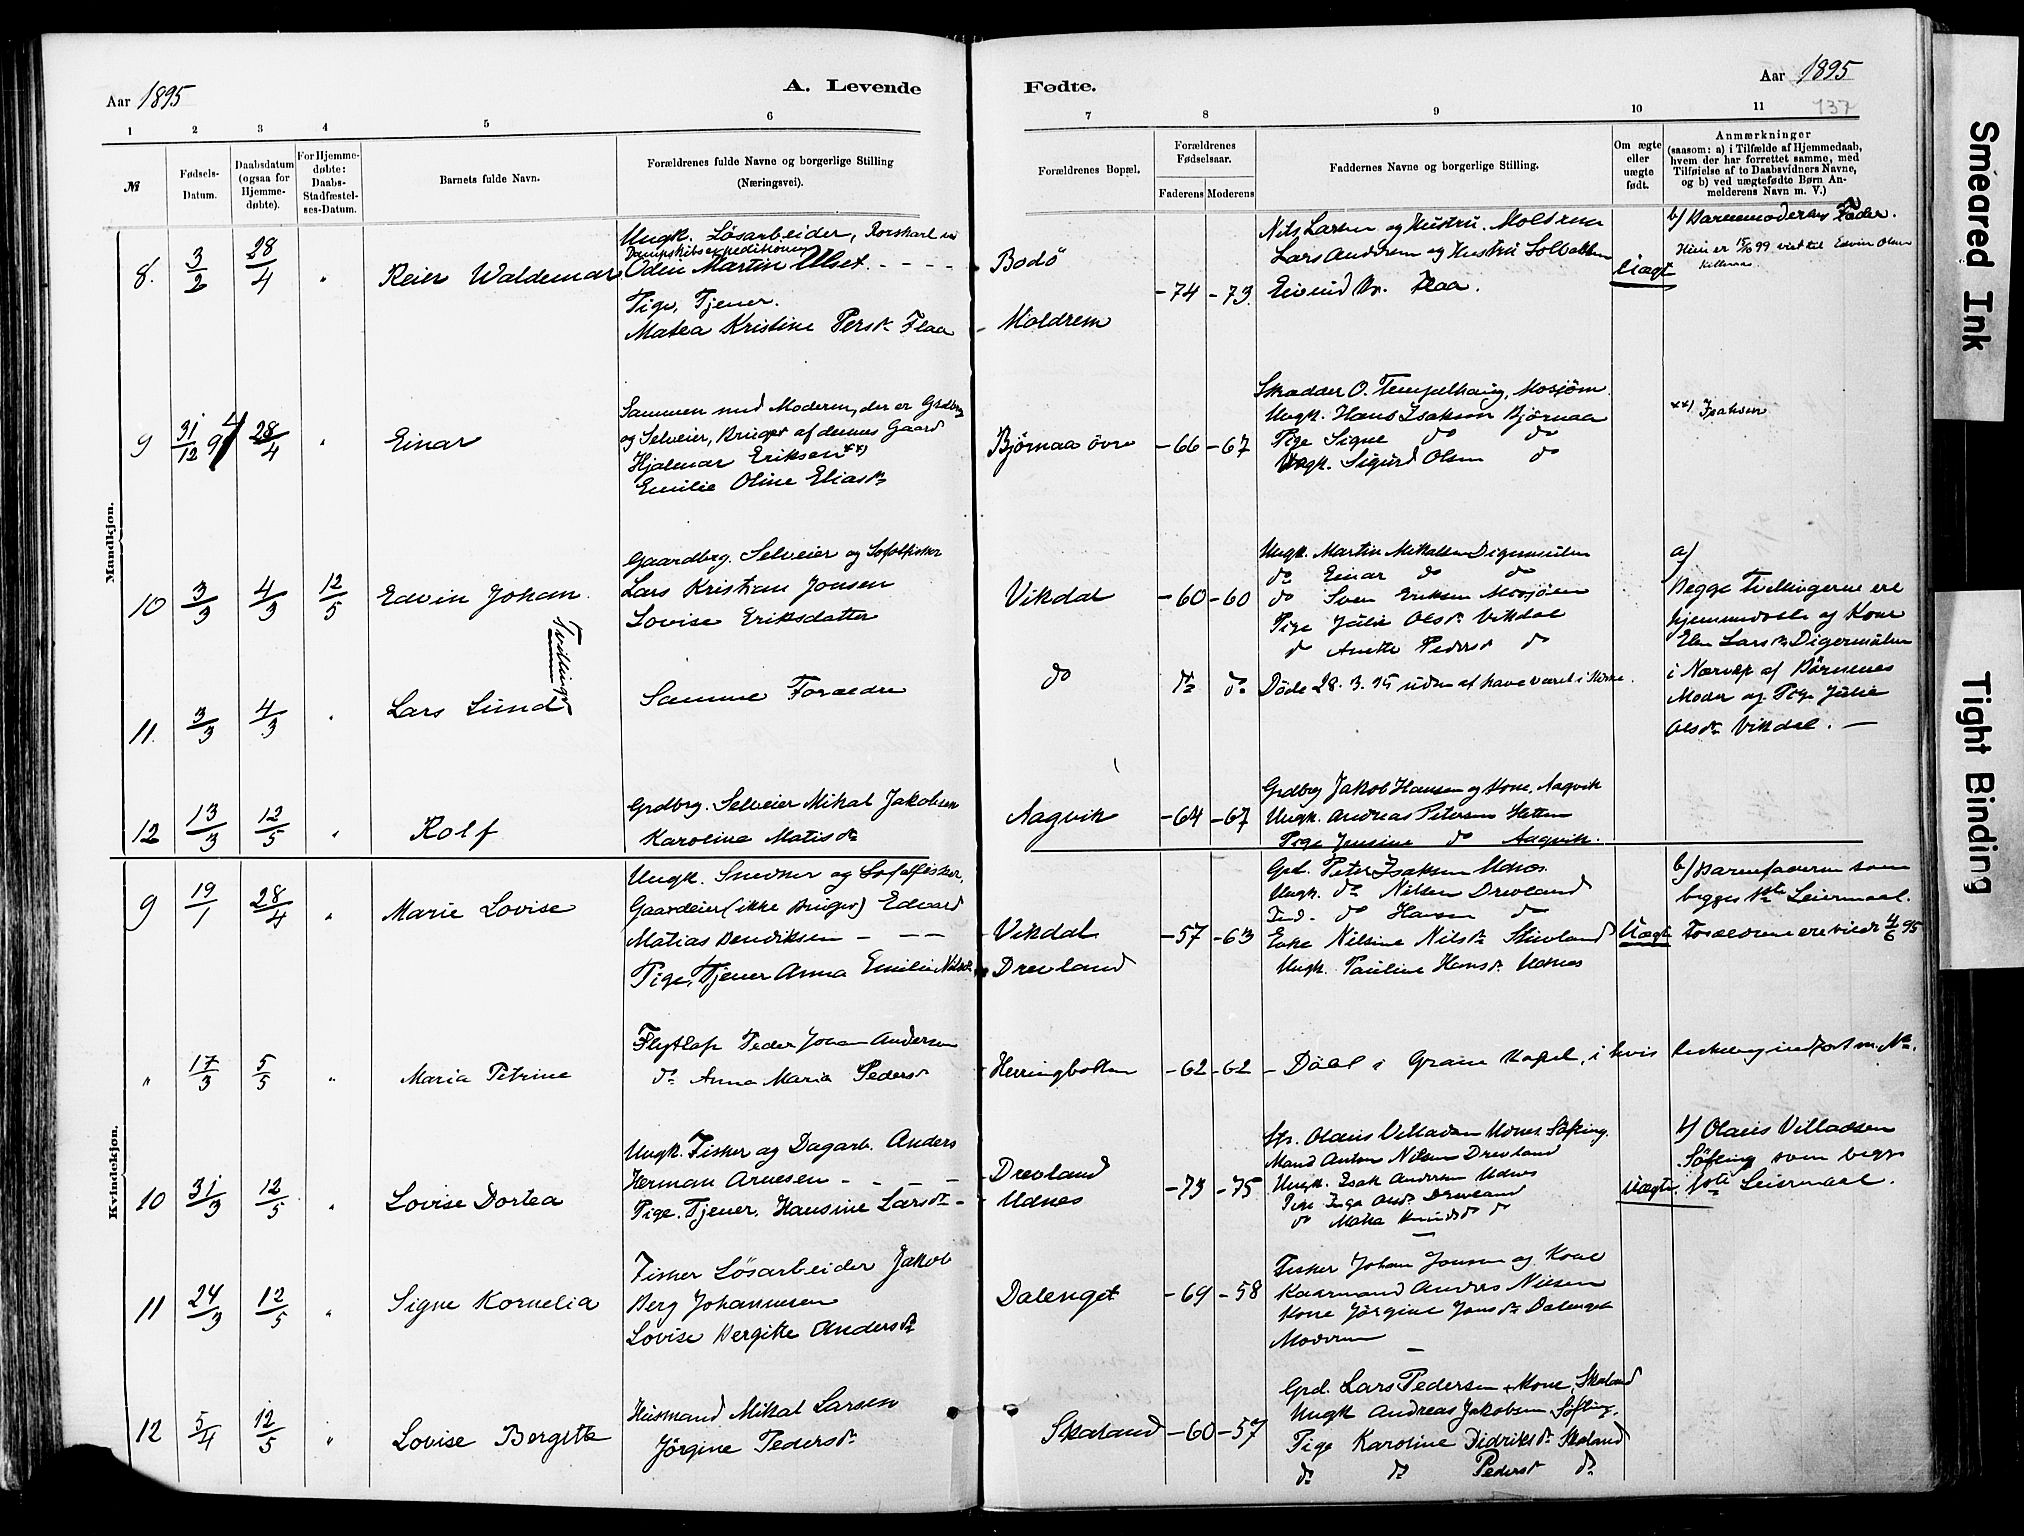 Aar 1895
A. Levende
Fødte.
Aar 1895
137
1 2 3 4 5 6 7 8 9 10 11
№
Fødsels-Datum.
Daabsdatum (ogsaa for Hjemme-døbte).
For Hjemme-døbte: Daabs-Stadfæstel-ses-Datum.
Barnets fulde Navn.
Forældrenes fulde Navne og borgerlige Stilling
(Næringsvei).
Forældrenes Bopæl.
Forældrenes Fødselsaar.
Faderens Moderens
Faddernes Navne og borgerlige Stilling.
Om ægte eller uægte født.
Anmærkninger
(saasom: a) i Tilfælde af Hjemmedaab,
hvem der har forrettet samme, med
Tilføielse af to Daabsvidners Navne,
og b) ved uægtefødte Børn An-
melderens Navn m. V.)
Mandkjøn.
8. 3/2 28/4 " Reier Waldemar
Ungk. Løsarbeider, Rorskarl ved
Dampskibsexpeditionen
Oden Martin Ulset - - - -
Pige, Tjener.
Matea Kristine Persdr. Flaa
Bodø
Moldrem
-74 -73
Nils Larsen og Hustru. Moldrem
Lars Andersen og Hustru Solbakken
Eivind Flaa.
Uægte
b/ Barnemoderens Fader.
Hun er 15/6 99 viet til Edvin Olsen
9 31/12 94 28/4 " Einar
Sammen med Moderen, der er Grdbrg
og Selveier, Bruger af dennes Gaard
Hjalmar Eriksen xx)
Emilie Oline Eliasdr
Bjørnaa øvre -66 -67
Skrædder O. Tempelhaug, Mosjøen
Ungk. Hans Isaksen Bjørnaa
Pige Signe do do
Ungk. Sigurd Olsen do
xx) Isaksen
10 3/3 4/3 12/5 Edvin Johan.
Tvillinger
Gaardbrg. Selveier og Lofotfisker
Lars Kristian Jonsen
Lovise Eriksdatter
Vikdal -60 -60
Ungk. Martin Mikalsen Digermulen
do Einar do do
do Sven Eriksen Mosjøen
Pige Julie Olsdr Vikdal
do Anette Pedersdr do
a/
Begge Tvillingerne ere
hjemmedøbte af Kone
Elen Larsdr Digermulen
i Nærvær af Børnenes
Moder og Pige Julie
Olsdr Vikdal. —
11. 3/3 4/3 " Lars Lind
Samme Forældre
do do do
Døde 28.3.95 uden at have været i Kirke.
12 13/3 12/5 " Rolf
Grdbrg. Selveier Mikal Jakobsen
Karoline Matisdr
Aagvik -64 -67
Grdbrg Jakob Hansen og Kone. Aagvik
Ungk. Andreas Petersen Sletten
Pige Jensine do Aagvik.
Kvindekjøn.
9 19/1 28/4 " Marie Lovise
Ungk. Snedker og Lofotfisker,
Gaardeier (ikke Bruger) Edvard
Matias Bendiksen - - -
Pige, Tjener Anna Emilie Nilsdr
Vikdal
Drevland
-57 -63
Grd. Peter Isaksen Udnes
Ungk. do Nilsen Drevland
Ind. do Hansen do
Enke Nilsine Nilsdr Stuvland
Ungk. Pauline Hansdr Udnes
Uægte
b/ Barnefaderen som
begges 1ste Leiermaal.
Forældrene ere viede 4/6 95
" 17/3 5/5 " Maria Petrine
Flytlap Peder Johan Andersen
do Anna Maria Pedersdr
Herringbotn -62 -62
- Døbt i Grane Kapel, i hvis Kirkebog indført m. No.
10 31/3 12/5 " Lovise Dortea
Ungk. Fisker og Dagarb. Anders
Herman Arnesen - - -
Pige. Tjener. Hansine Larsdr -
Drevland
Udnes
-73 -75
Olaus Villadsen Udnes Søfting.
Mand Anton Nilsen Drevland
Ungk. Isak Andersen Udnes
Pige Inga Andsdr Drevland
do Marta Knudsdr do
Uægte
b/ Olaus Villadsen
Søfting som begges
1ste Leiermaal.
11 24/3 12/5 " Signe Kornelia
Fisker Løsarbeider Jakob
Berg Johannesen
Lovise Bergitte Andersdr
Dalenget -69 -58
Fisker Johan Jonsen og Kone
Kaarmand Andreas Nilsen
Kone Jørgine Jonsdr Dalenget
Moderen
12 5/4 12/5 " Lovise Bergitte
Husmand Mikal Larsen
Jørgine Pedersdr
Skaland -60 -57
Grd. Lars Pedersen + Kone, Skaland
Ungk Andreas Jakobsen Søfting.
Pige Karoline Didriksdr Skaland
do do Pedersdr do
Smeared Ink
Tight Binding